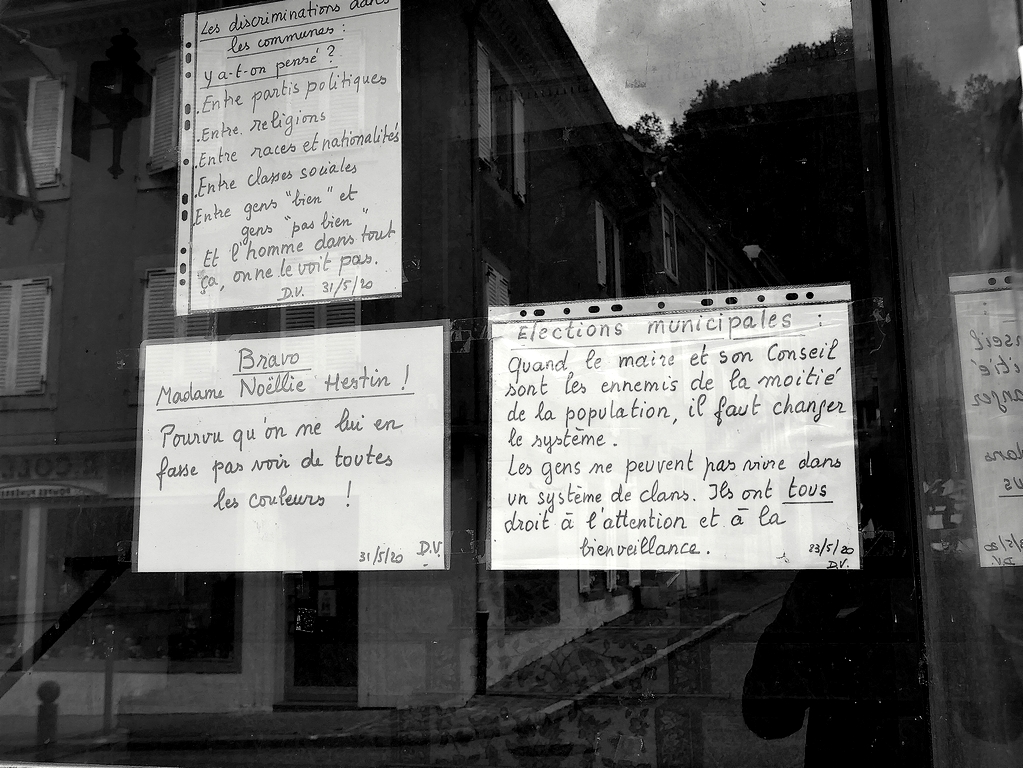 Les discriminations dans
les communes :
Y a-t-on pensé ?
. Entre partis politiques
. Entre religions
. Entre races et nationalités
. Entre classes sociales
Entre gens "bien" et
gens "pas bien"
Et l'homme dans tout
ça, on ne le voit pas.
D.V. 31/5/20
Bravo
Madame Noëllie Hestin !
Pourvu qu'on ne lui en
fasse pas voir de toutes
les couleurs !
31/5/20 D.V.
Elections municipales :
Quand le maire et son Conseil
sont les ennemis de la moitié
de la population, il faut changer
le système.
Les gens ne peuvent pas vivre dans
un système de clans. Ils ont tous
droit à l'attention et à la
bienveillance.
23/5/20
D.V.